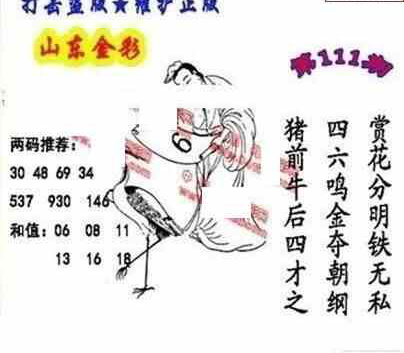 打击盗版★维护正版
山东金彩
第111期
两码推荐:
30 48 69 34
537 930 146
和值: 06 08 11
13 16 18
6
赏花分明铁无私
四六鸣金夺朝纲
猪前牛后四才之